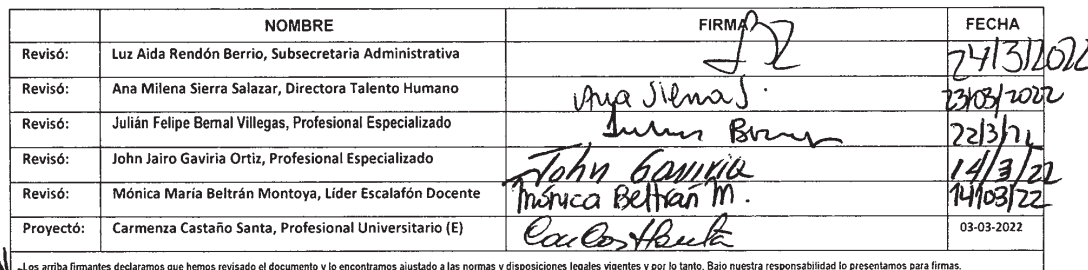 NOMBRE FIRMA FECHA
Revisó: Luz Aida Rendón Berrio, Subsecretaria Administrativa 24/3/2022
Revisó: Ana Milena Sierra Salazar, Directora Talento Humano Ana Sierra S. 23/03/2022
Revisó: Julián Felipe Bernal Villegas, Profesional Especializado 22/3/22
Revisó: John Jairo Gaviria Ortiz, Profesional Especializado John Gaviria 14/3/22
Revisó: Mónica María Beltrán Montoya, Líder Escalafón Docente Mónica Beltrán M. 14/03/22
Proyectó: Carmenza Castaño Santa, Profesional Universitario (E) 03-03-2022
Los arriba firmantes declaramos que hemos revisado el documento y lo encontramos ajustado a las normas y disposiciones legales vigentes y por lo tanto, Bajo nuestra responsabilidad lo presentamos para firmas.